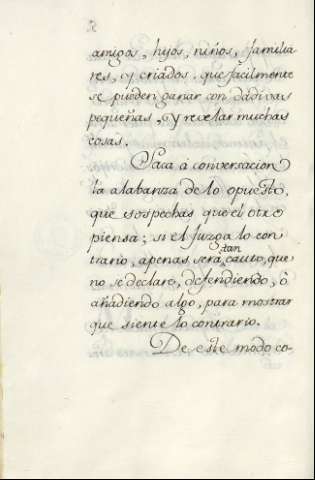 2
amigos, hijos, niños, familia
res, y criados, que facilmente
se pueden ganar con dádivas
pequeñas, y revelar muchas
cosas.
Saca á conversacion
la alabanza de lo opuesto,
que sospechas que el otro
piensa; si el Juzga lo con
trario, apenas será tan cauto, que
no se declare, defendiendo, ò
añadiendo algo, para mostrar
que siente lo contrario.
De este modo co-